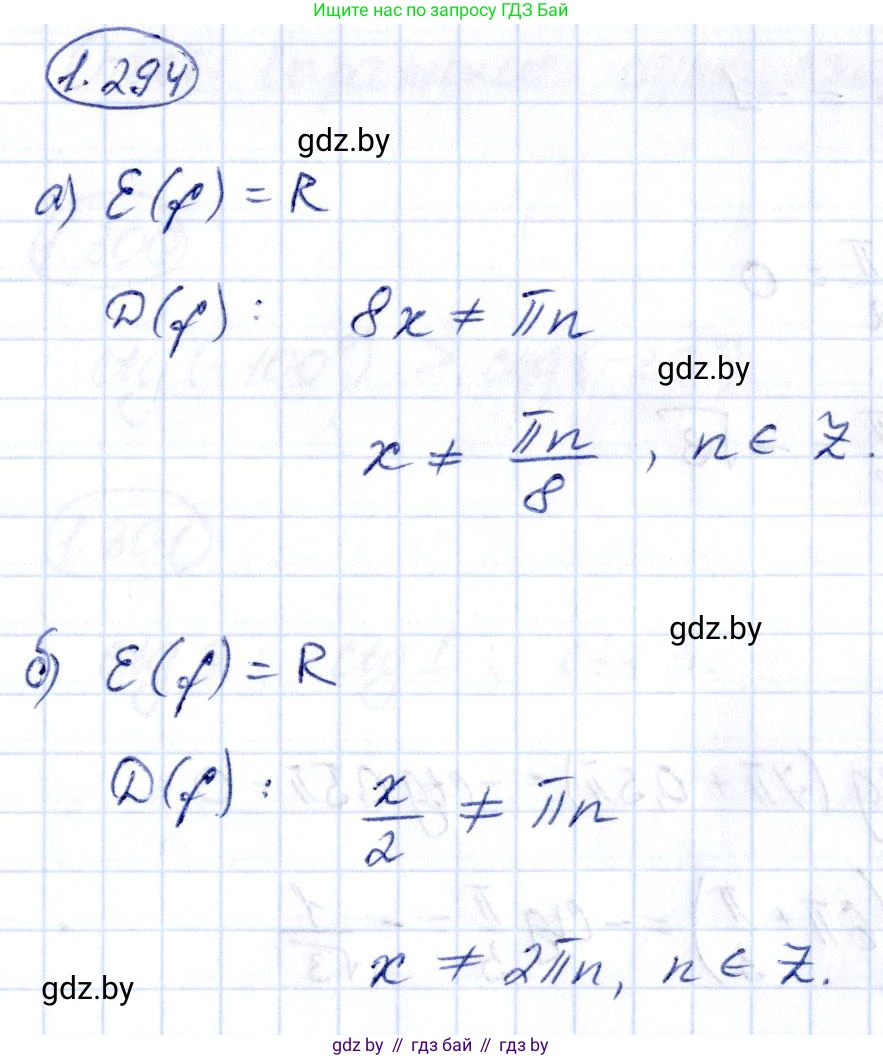 Ищите нас по запросу ГДЗ Бай
1.294
gdz.by
а) E(f) = R
D(f): 8x ≠ πn
gdz.by
x ≠ πn/8, n ∈ Z.
gdz.by
б) E(f) = R
D(f): x/2 ≠ πn
x ≠ 2πn, n ∈ Z.
gdz.by
gdz.by // гдз бай // gdz by